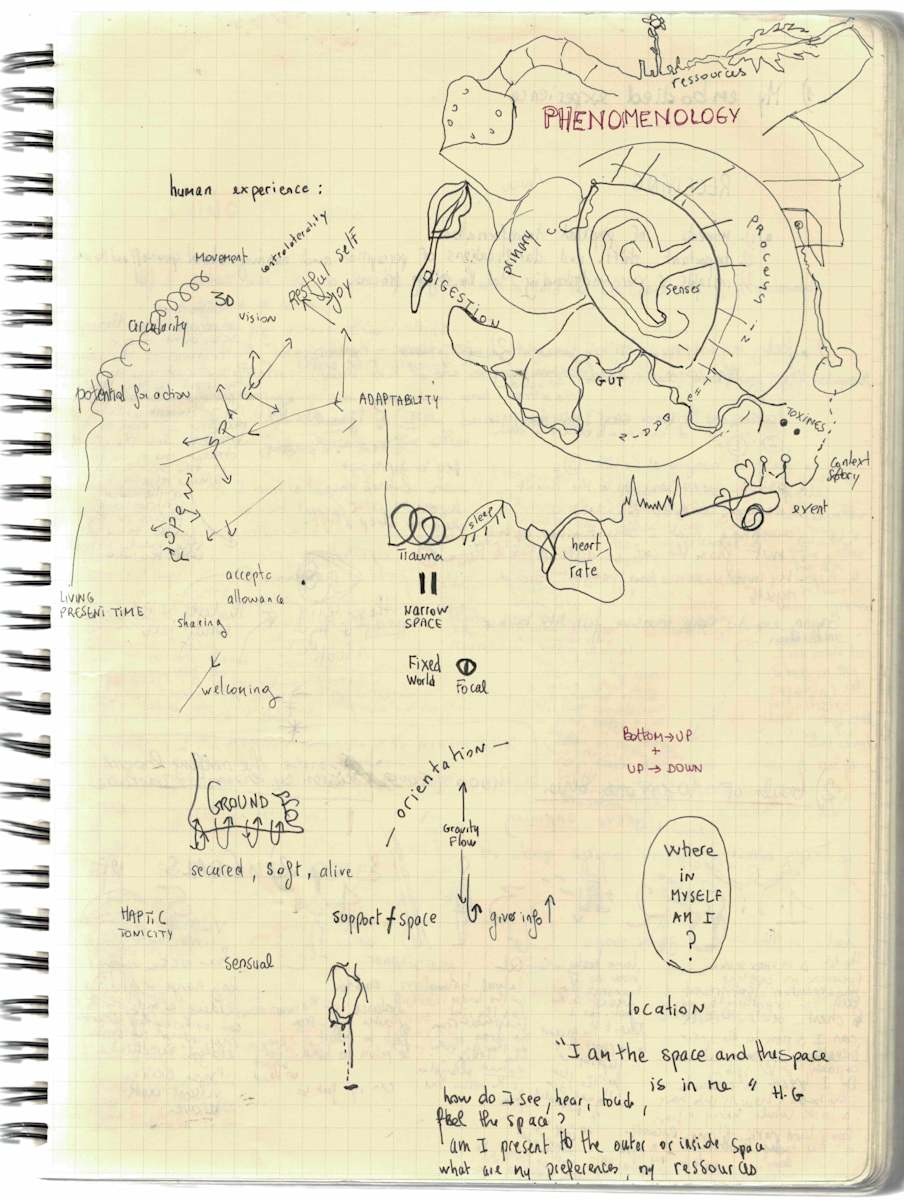 ressources
PHENOMENOLOGY
human experience :
Movement
controlaterality
Restful self
Joy
3D
vision
circularity
primary
senses
PROCESSING
DIGESTION
GUT
TOXINES
potential for action
ADAPTABILITY
SPACE
OPEN
context
story
event
sleep
Trauma
heart
rate
NARROW
SPACE
LIVING
PRESENT TIME
allowance
sharing
welcoming
Fixed
World
Focal
Bottom → UP
+
UP → DOWN
— orientation —
GROUND
Gravity
Flow
secured, soft, alive
where
IN
MYSELF
AM I
?
HAPTIC
TONICITY
support + space
gives info
sensual
location
"I am the space and the space
is in me" H.G
how do I see, hear, touch,
feel the space?
am I present to the outer or inside space
what are my preferences, my ressources